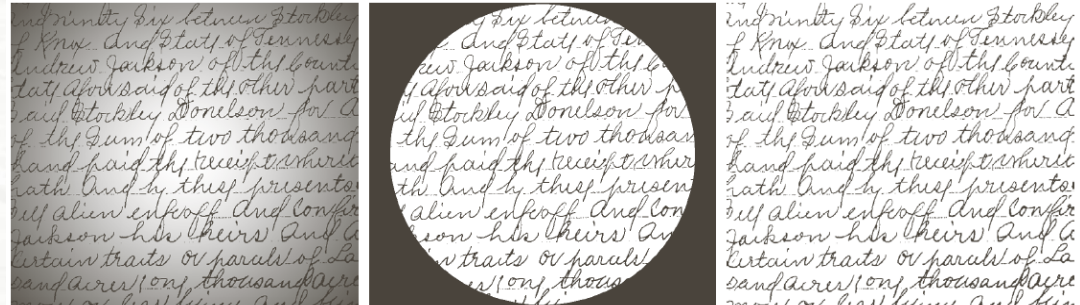 Ninety Six between Stockley
of Knox and State of Tennessey
Andrew Jackson of the Count
aforesaid of the other part
said Stockley Donelson for a
of the Sum of two thousand
hand paid the receipt wherin
hath and by these presents
alien enfeoff and Confir
Jackson his heirs and a
Certain traits or parcels of La
sand acres one thousand acres
Six between
and State of Ten
Jackson of the Co
aforesaid of the other p
Stockley Donelson for
the Sum of two thousan
and paid the receipt wher
th and by these presen
alien enfeoff and Con
son his heirs an
tain traits or parcels
one thousan
Ninety Six between Stockley
of Knox and State of Tennessey
Andrew Jackson of the Count
aforesaid of the other part
said Stockley Donelson for a
of the Sum of two thousand
hand paid the receipt wherin
hath and by these presents
alien enfeoff and Confir
Jackson his heirs and a
Certain traits or parcels of La
sand acres one thousand acres